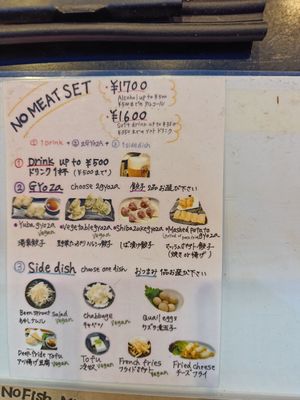 NO MEAT SET
¥1700
Alcohol up to ¥500
¥500まで アルコール
¥1600
Soft drink up to ¥350
¥350まで ソフトドリンク
① 1 drink + ② 2 gyoza + ③ 1 side dish
① Drink up to ¥500
ドリンク 1杯 (¥500まで)
② Gyoza choose 2 gyoza 餃子 2品お選び下さい
• Yuba gyoza
vegan
湯葉餃子
• Vegetable gyoza
vegan
• Shibazuke gyoza
vegan
しば漬け餃子
• Mashed potato gyoza
マッシュポテト餃子
③ Side dish choose one dish おつまみ 1品お選び下さい
Bean sprout Salad
vegan
Chabbage
キャベツ
vegan
Quail eggs
ウズラ煮玉子
Deep-fride Tofu
アツ揚げ豆腐
vegan
Tofu
冷奴
vegan
French fries
フライドポテト
vegan
Fried cheese
チーズフライ
No Fish